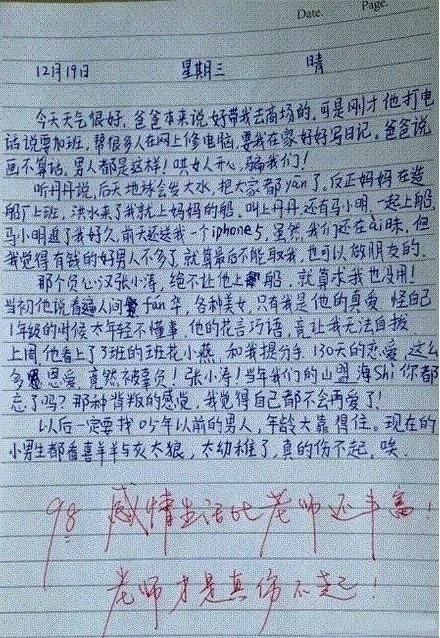 Date. Page.
12月19日 星期三 晴
今天天气很好，爸爸本来说好带我去商场的，可是刚才他打电
话说要加班，帮很多人在网上修电脑，要我在家好好写日记。爸爸说
画不算话，男人都是这样！哄女人开心，骗我们！
听丹丹说，后天地球会发大水，把大家都yān了，反正妈妈在造
船厂上班，洪水来了我就上妈妈的船，叫上丹丹，还有马小明，一起上船，
马小明追了我好久，前天还送我一个iphone5，虽然我们还在ài昧，但
我觉得有钱的好男人不多了，就算最后不能取我，也可以做朋友的。
那个负心汉张小涛，绝不让他上船，就算求我也没用！
当初他说看遍人间fán华，各种美女，只有我是他的真爱，怪自己
1年级的时候太年轻不懂事，他的花言巧语，竟让我无法自拔
上周他看上了3班的班花小燕，和我提分手，130天的恋爱，这么
多恩爱，竟然不被辜负！张小涛！当年我们的山盟海Shì你都
忘了吗？那种背叛的感觉，我觉得自己都不会再爱了！
以后一定要找05年以前的男人，年龄大靠得住。现在的
小男生都看喜羊羊与灰太狼，太幼稚了，真的伤不起，唉。
98 感情生活比老师还丰富！
老师才是真伤不起！